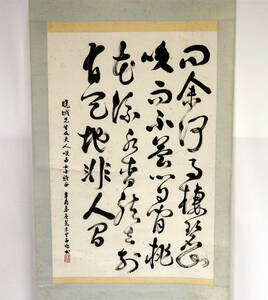 問余何事棲碧山
笑而不答心自閑桃
花流水杳然去別
有天地非人間
先生及夫人